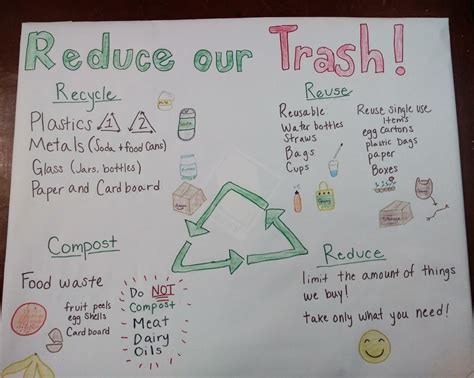 Reduce our Trash!
Recycle
Plastics 1 2
Metals (Soda + food Cans)
Glass (Jars, bottles)
Paper and Cardboard
Reuse
Reusable
Water bottles
Straws
Bags
Cups
Reuse single use
Items
egg cartons
plastic bags
paper
Boxes
Compost
Food waste
fruit peels
egg shells
Cardboard
Do NOT
Compost
Meat
Dairy
Oils
Reduce
limit the amount of things
we buy!
take only what you need!